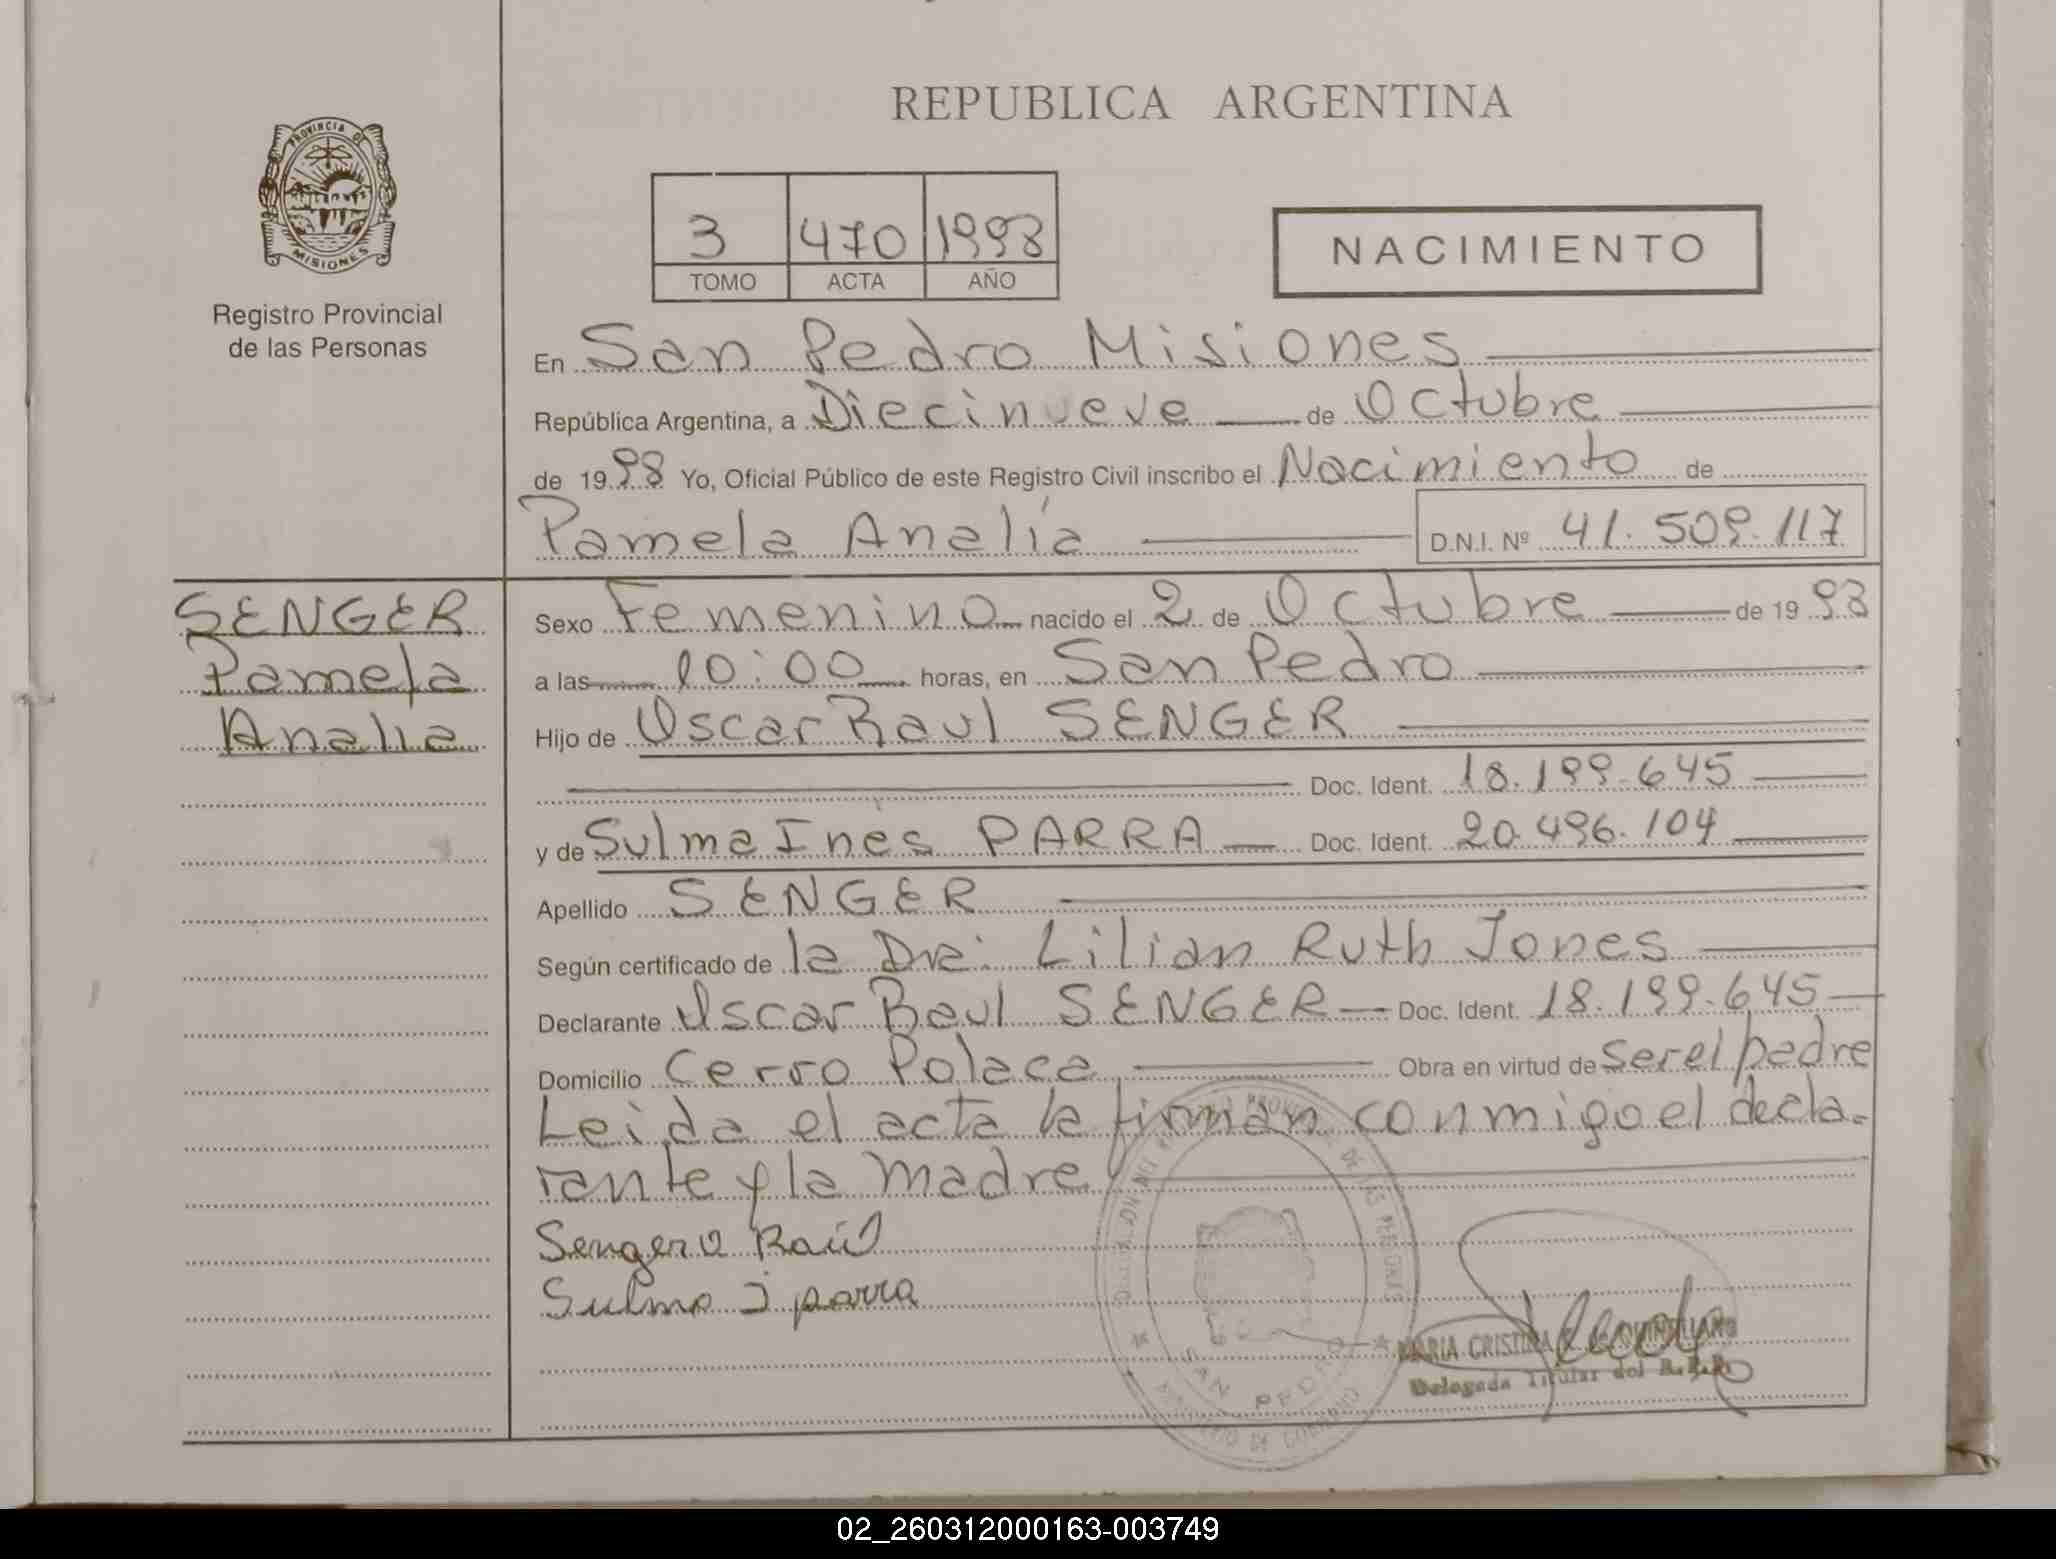 REPUBLICA ARGENTINA
PROVINCIA DE
MISIONES
Registro Provincial
de las Personas
3 470 1998
TOMO ACTA AÑO
NACIMIENTO
En San Pedro Misiones
República Argentina, a Diecinueve de Octubre
de 1998 Yo, Oficial Público de este Registro Civil inscribo el Nacimiento de
Pamela Analía D.N.I. Nº 41.509.117
SENGER
Pamela
Analia
Sexo Femenino nacido el 2 de Octubre de 1998
a las 10:00 horas, en San Pedro
Hijo de Oscar Raul SENGER
Doc. Ident. 18.199.645
y de Sulma Ines PARRA Doc. Ident. 20.496.104
Apellido SENGER
Según certificado de la Dra: Lilian Ruth Jones
Declarante Oscar Raul SENGER Doc. Ident. 18.199.645
Domicilio Cerro Polaca Obra en virtud de ser el padre
Leida el acta la firman conmigo el decla-
rante y la madre
Senger O Raúl
Sulma I parra
SAN PEDRO
MARIA CRISTINA de QUINTILLANO
Delegada Titular del R.P.P.
02_260312000163-003749